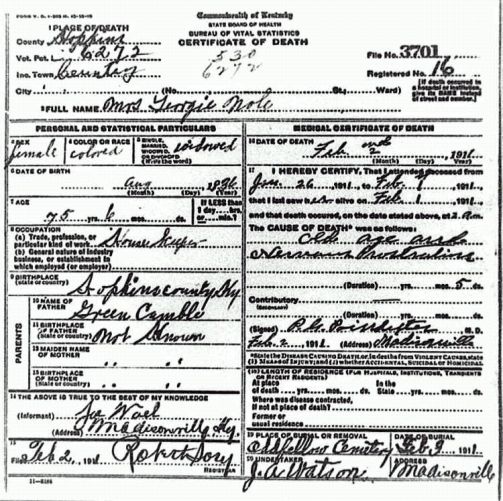 Commonwealth of Kentucky
STATE BOARD OF HEALTH
BUREAU OF VITAL STATISTICS
CERTIFICATE OF DEATH
1 PLACE OF DEATH
County Hopkins
Vot. Pct. 6272
530
6272
File No. 3701
Inc. Town County
Registered No. 16
City (No. St.; Ward)
[If death occurred in a hospital or institution, give its NAME instead of street and number.]
2 FULL NAME Mrs Georgie Nole
PERSONAL AND STATISTICAL PARTICULARS
3 SEX female
4 COLOR OR RACE colored
5 SINGLE, MARRIED, WIDOWED, OR DIVORCED (Write the word) widowed
6 DATE OF BIRTH
Aug
(Month) (Day) (Year)
7 AGE
75 yrs. 6 mos. ds.
If LESS than 1 day, hrs. or min.?
8 OCCUPATION
(a) Trade, profession, or particular kind of work House keeper
(b) General nature of industry business, or establishment in which employed (or employer)
9 BIRTHPLACE
(State or country) Hopkins county Ky
PARENTS
10 NAME OF FATHER Green
11 BIRTHPLACE OF FATHER (State or country) Not Known
12 MAIDEN NAME OF MOTHER " "
13 BIRTHPLACE OF MOTHER (State or country) " "
14 THE ABOVE IS TRUE TO THE BEST OF MY KNOWLEDGE
(Informant)
(Address) Madisonville Ky
15
Filed Feb 2, 1911 Robert
REGISTRAR
MEDICAL CERTIFICATE OF DEATH
16 DATE OF DEATH
Feb 2nd, 1911
(Month) (Day) (Year)
17 I HEREBY CERTIFY, That I attended deceased from
Jan 26 1911, to Feb 1 1911,
that I last saw her alive on Feb 1 1911,
and that death occurred, on the date stated above, at 2 a.m.
The CAUSE OF DEATH was as follows:
Old age and
Nervous Prostration
(Duration) yrs. mos. 5 ds.
Contributory
(Duration) yrs. mos. ds.
(Signed) M. D.
Feb 2, 1911 (Address) Madisonville
State the DISEASE CAUSING DEATH, or, in deaths from VIOLENT CAUSES, state (1) MEANS OF INJURY; and (2) whether ACCIDENTAL, SUICIDAL or HOMICIDAL.
18 LENGTH OF RESIDENCE (FOR HOSPITALS, INSTITUTIONS, TRANSIENTS OR RECENT RESIDENTS)
At place of death yrs. mos. ds. In the State yrs. mos. ds.
Where was disease contracted, if not at place of death?
Former or usual residence
19 PLACE OF BURIAL OR REMOVAL Oddfellow Cemetery
DATE OF BURIAL Feb 3, 1911
20 UNDERTAKER J. A. Watson
ADDRESS Madisonville
11-3184